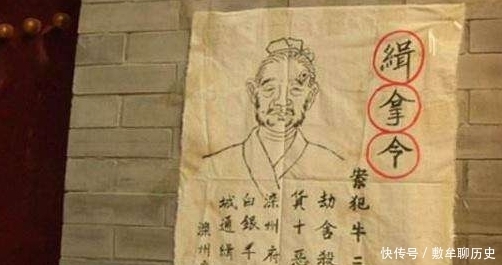 緝拿令
案犯牛
劫舍殺
貨十惡
滦州府
白銀
城通緝
滦州
快传号 / 敷牟聊历史